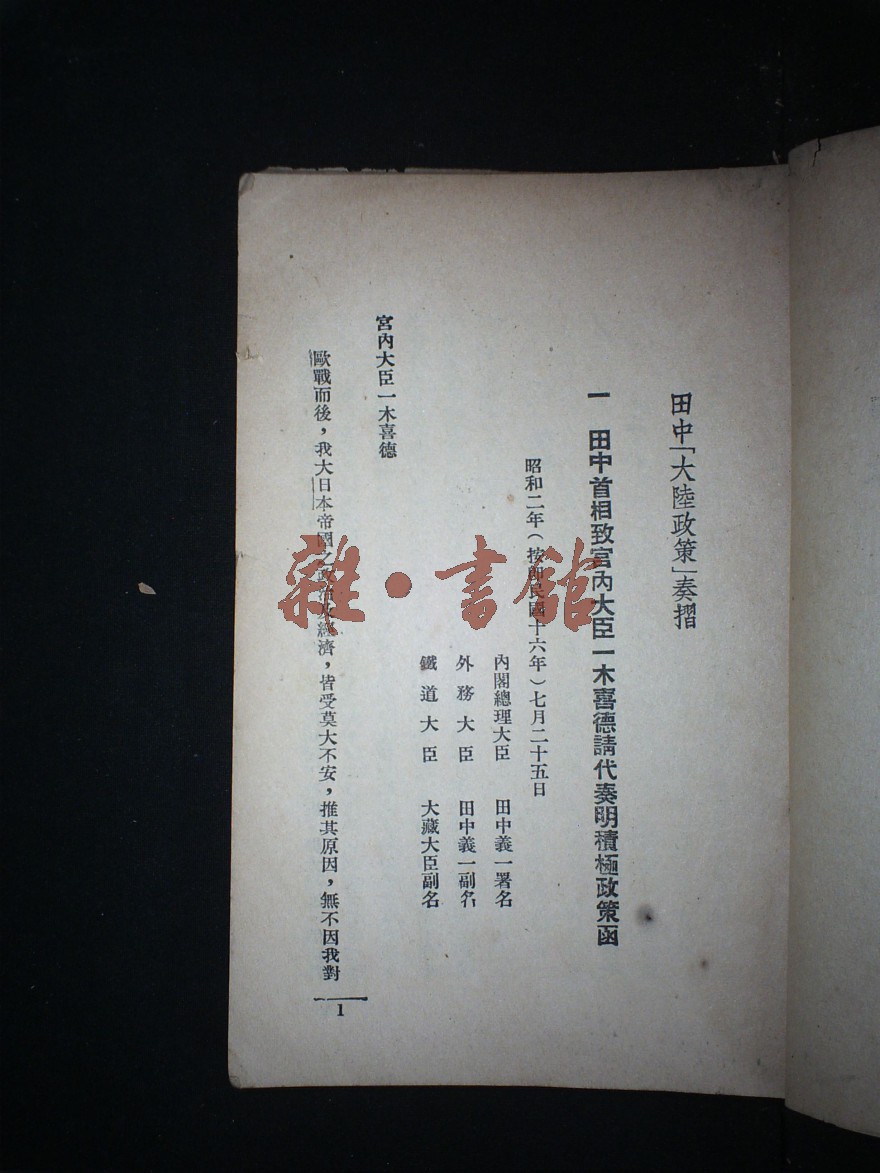 田中「大陸政策」奏摺
一　田中首相致宮內大臣一木喜德請代奏明積極政策函
昭和二年(按即民國十六年)七月二十五日
內閣總理大臣　田中義一署名
外務大臣　田中義一副名
鐵道大臣　大藏大臣副名
宮內大臣一木喜德
歐戰而後,我大日本帝國之政治及經濟,皆受莫大不安,推其原因,無不因我對
1
雜·書館